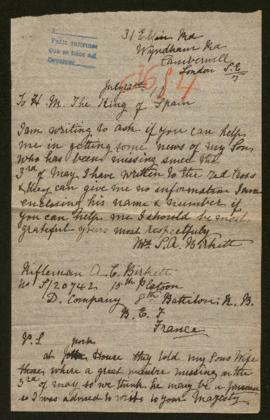 31 Elkin Rd
Wyndham Rd
Camberwell
London S.E
July
To H. M. The King of Spain
I am writing to ask if you can help
me in getting some news of my Son
who has been missing since the
3rd of May I have written to the Red Cross
& they can give me no information I am
enclosing his name & number if
you can help me I should be most
grateful yours most respectfully
Mrs S.A. Birkett
Rifleman A. C. Birkett
No S/20742 15th Platoon
D. Company 8th Battelion R. B.
B. E. F
France
P.S
at York House they told my Sons Wife
there where a great number missing on the
3rd of may so we think he may be a prisoner
so I was advised to write to your Magesty